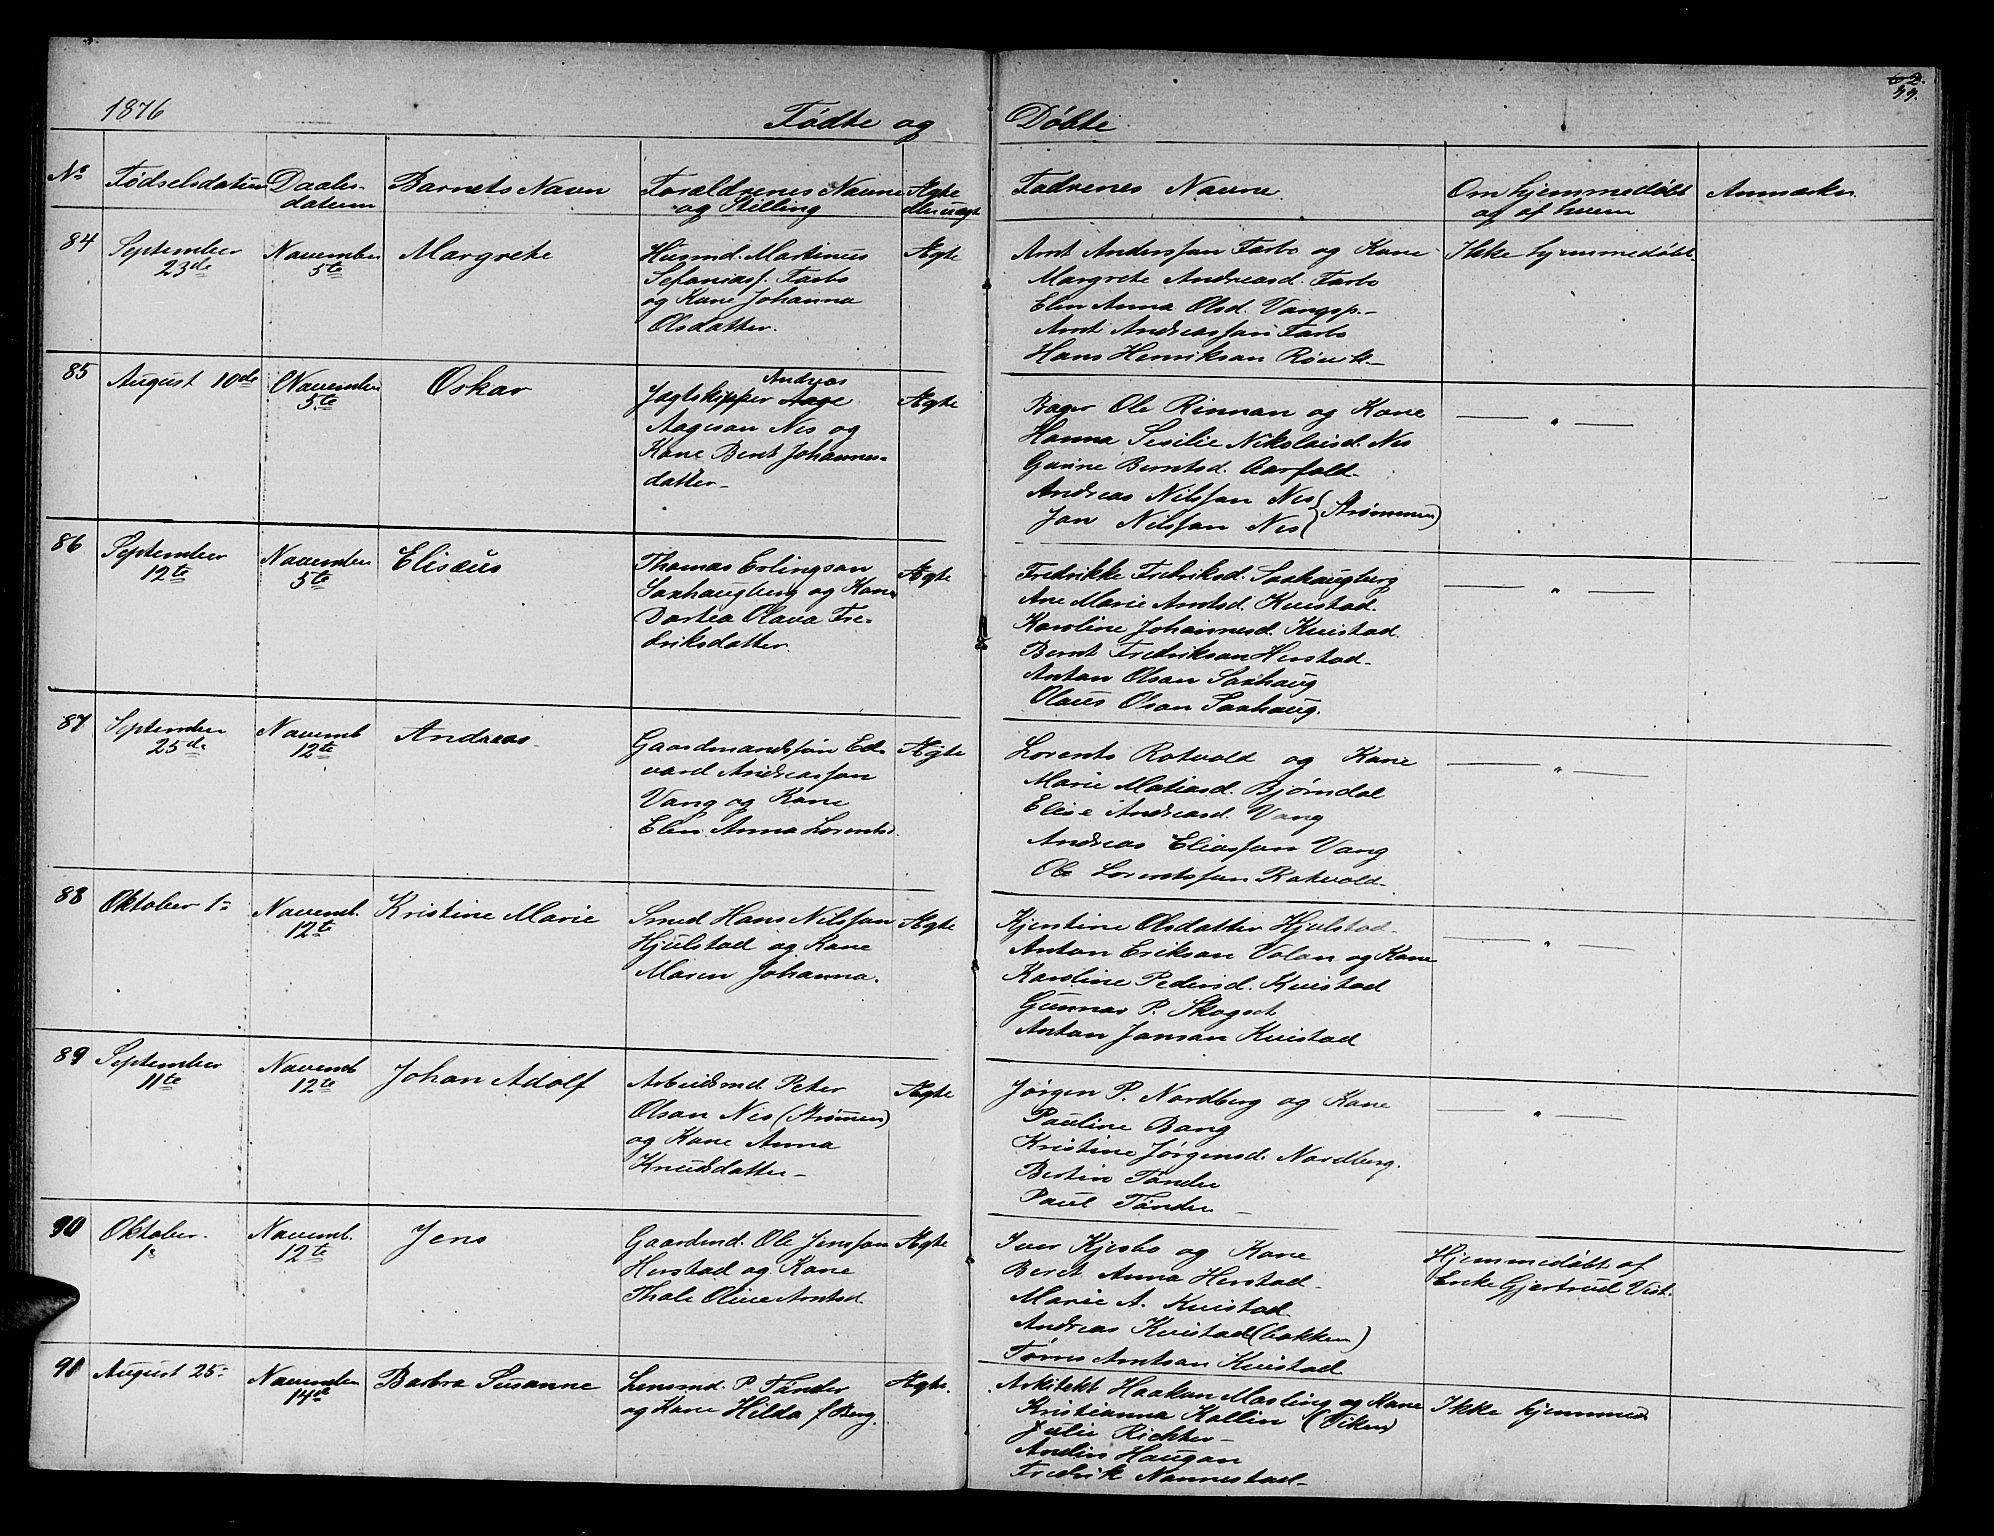 1876
Fødte og
Døbte
62.
N°
Fødselsdatum
Daabs-
datum
Barnets Navn
Forældrenes Navne
og Stilling
Ægte
Uægte
Fadrenes Navne
Om hjemmedøbt
af af hvem
Anmærkn
84
September
23de
November
5te
Margrete
Husmd. Martinus
Sefaniass. Farbo
og Kone Johanna
Olsdatter.
Ægte
Arnt Anderssøn Farbo og Kone
Margrete Andreasd. Farbo
Elen Anna Olsd. Vangsp.-
Arnt Andreassøn Farbo
Hans Henriksøn Røvik-
Ikke hjemmedøbt
85
August 10de
November
5te
Oskar
Andreas
Jægtskipper Aage
Aagesøn Nes og
Kone Berit Johannes-
datter-
Ægte
Bager Ole Rinnan og Kone
Hanna Sesilie Nikolaisd. Nes
Gurine Berntsd. Aarfald-
Andreas Nilssøn Nes
Jon Nilssøn Nes (Strømmen)
— " —
86
September
12te
November
5te
Elisæus
Thomas Erlingsøn
Saxhaugberg og Kone
Dortea Olava Fre-
driksdatter.
Ægte
Fredrikke Fredriksd. Saxhaugberg
Ane Marie Arntsd. Kvistad.
Karoline Johannesd. Kvistad.
Bernt Fredriksøn Herstad-
Anton Olsøn Saxhaug
Olaus Olsøn Saxhaug.
— " —
87
September
25de
Novemb
12te
Andreas
Gaardmandssøn Ed-
vard Andreassøn
Vang og Kone
Elen Anna Lorentsd.
Ægte
Lorents Rotvold og Kone
Marie Matiasd. Bjørndal
Elise Andreasd. Vang
Andreas Eliassøn Vang
Ole Lorentssøn Rotvold-
— " —
88
Oktober 1=
Novemb.
12te
Kristine Marie
Smed Hans Nilssøn
Hjulstad og Kone
Maren Johanna.
Ægte
Kjerstine Olsdatter Hjulstad-
Anton Eriksøn Volan og Kone
Karoline Pedersd. Kvistad
Gunnar P. Skogset
Anton Jonsøn Kvistad
— " —
89
September
11te
Novemb
12te
Johan Adolf
Arbeidsmd. Peter
Olsøn Nes (Strømen)
og Kone Anna
Knudsdatter-
Ægte
Jørgen P. Nordberg og Kone
Pauline Bang
Kristine Jørgensd. Nordberg.
Bertin Tønder
Paul Tønder-
— " —
90
Oktober.
1=
Novemb.
12te
Jens
Gaardmd. Ole Jenssøn
Herstad og Kone
Thale Oline Arntsd.
Ægte
Iver Kjesbo og Kone
Beret Anna Herstad-
Marie A. Kvistad
Andreas Kvistad (bakken)
Tørres Arntsøn Kvistad
Hjemmedøbt af
Enke Gjertrud Vist.
91
August 25=
November
14de
Barbra Susanne
Lensmd. P. Tønder
og Kone Hilda f Berg.
Ægte.
Arkitekt Haakon Mosling og Kone
Kristianna Kollin (Viken)
Julie Richter-
Andin Haugan
Fredrik Nannestad-
Ikke hjemmed